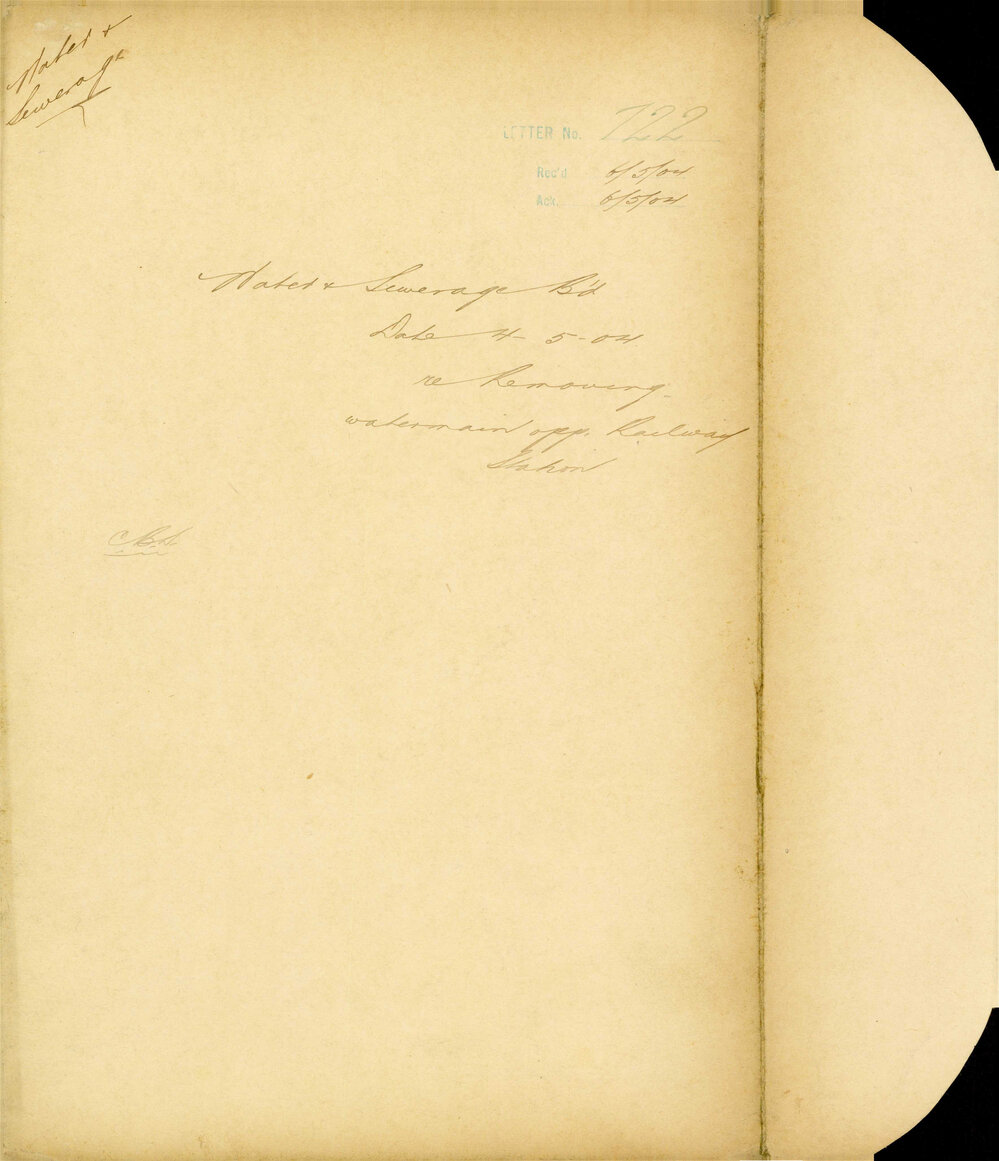 Water &
Sewerage
LETTER No. 722
Rec'd 6/5/04
Ack. 6/5/04
Water & Sewerage B'd
Date 4-5-04
re Removing
watermain opp. Railway
Station